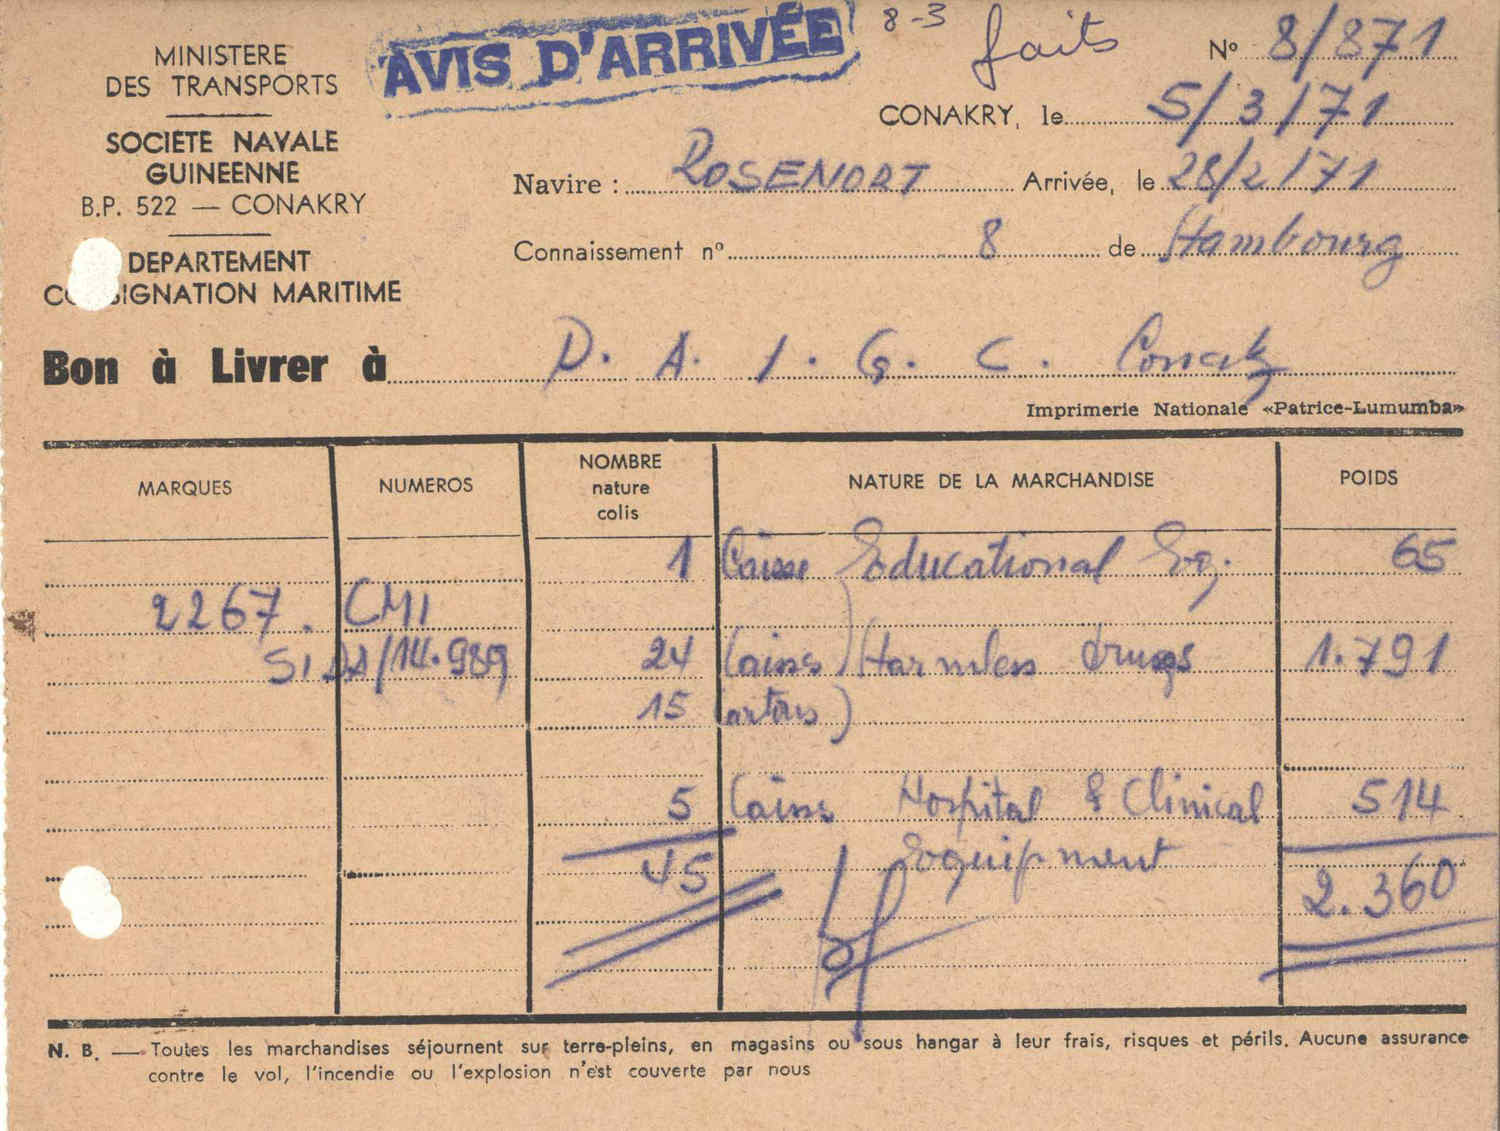 AVIS D'ARRIVÉE
8-3 faits
MINISTERE
DES TRANSPORTS
SOCIETE NAVALE
GUINEENNE
B.P. 522 — CONAKRY
DEPARTEMENT
CONSIGNATION MARITIME
N° 8/871
CONAKRY, le 5/3/71
Navire : ROSENORT Arrivée, le 28/2/71
Connaissement n° 8 de Hambourg
Bon à Livrer à P. A. I. G. C. Conakry
Imprimerie Nationale «Patrice-Lumumba»
MARQUES NUMEROS NOMBRE nature colis NATURE DE LA MARCHANDISE POIDS
1 Caisse Educational Eq. 65
2267. CMI
SIDA/14.989 24 Caisses) Harmless drugs 1.791
15 Cartons)
5 Caisses Hospital & Clinical 514
45 Eoquipment 2.360
N. B. — Toutes les marchandises séjournent sur terre-pleins, en magasins ou sous hangar à leur frais, risques et périls. Aucune assurance
contre le vol, l'incendie ou l'explosion n'est couverte par nous